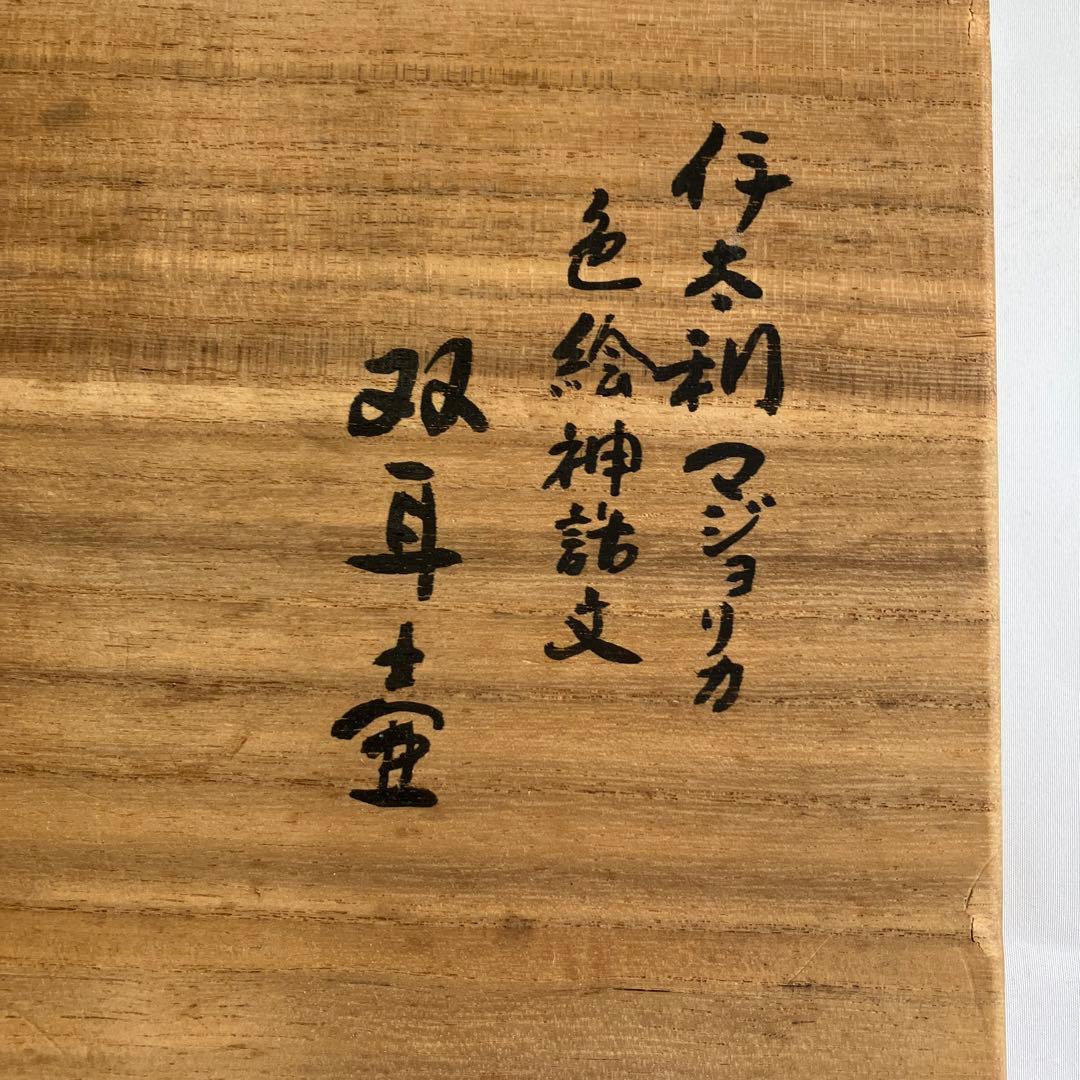 伊太利マジョリカ
色絵神話文
双耳壷